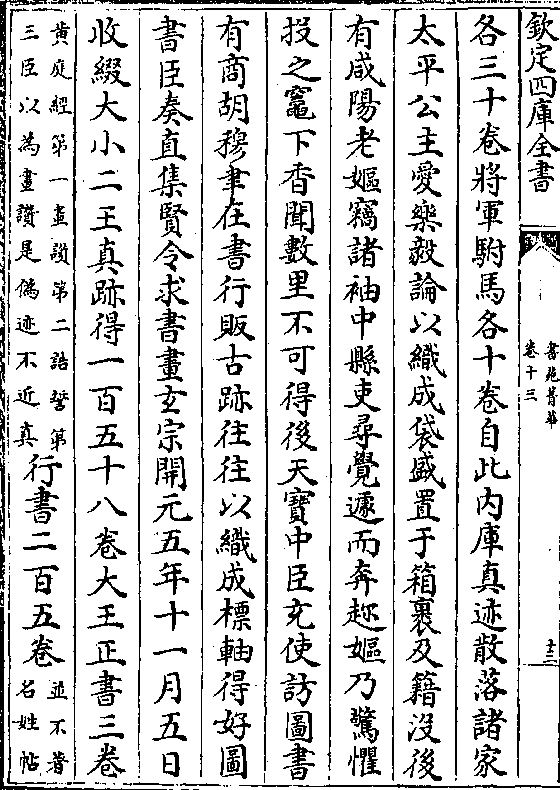 欽定四庫全書
書苑菁華
卷十三
十二
各三十卷將軍駙馬各十卷自此内庫真迹散落諸家
太平公主愛樂毅論以織成袋盛置于箱裹及籍沒後
有咸陽老嫗竊諸袖中縣吏尋覺遽而奔趂嫗乃驚懼
投之竈下香聞數里不可得後天寶中臣充使訪圖書
有商胡穆聿在書行販古跡往往以織成標軸得好圖
書臣奏直集賢令求書畫玄宗開元五年十一月五日
收綴大小二王真跡得一百五十八卷大王正書三卷
黄庭經第一畫讃第二誥誓第
三臣以為畫讃是僞迹不近真
行書二百五卷
並不着
名姓帖